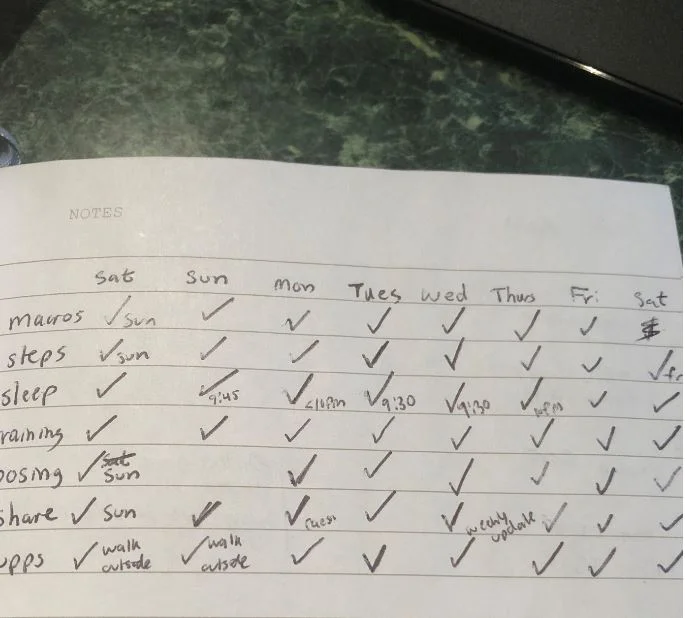 NOTES
Sat Sun Mon Tues Wed Thurs Fri Sat
macros ✓ Sun ✓ ✓ ✓ ✓ ✓ ✓
steps ✓ Sun ✓ ✓ ✓ ✓ ✓ ✓ ✓ fr
sleep ✓ ✓ 9:45 ✓ <10pm ✓ 9:30 ✓ 9:30 ✓ 10pm ✓ ✓
raining ✓ ✓ ✓ ✓ ✓ ✓ ✓ ✓
posing ✓ sat Sun ✓ ✓ ✓ ✓ ✓ ✓
share ✓ Sun ✓ ✓ ✓ ✓ weekly update ✓ ✓ ✓
pps ✓ walk outside ✓ walk outside ✓ ✓ ✓ ✓ ✓ ✓